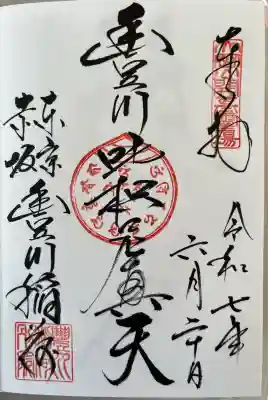 奉拝
令和七年
六月二十日
豊川吒枳尼真天
東京
赤坂豊川稲荷